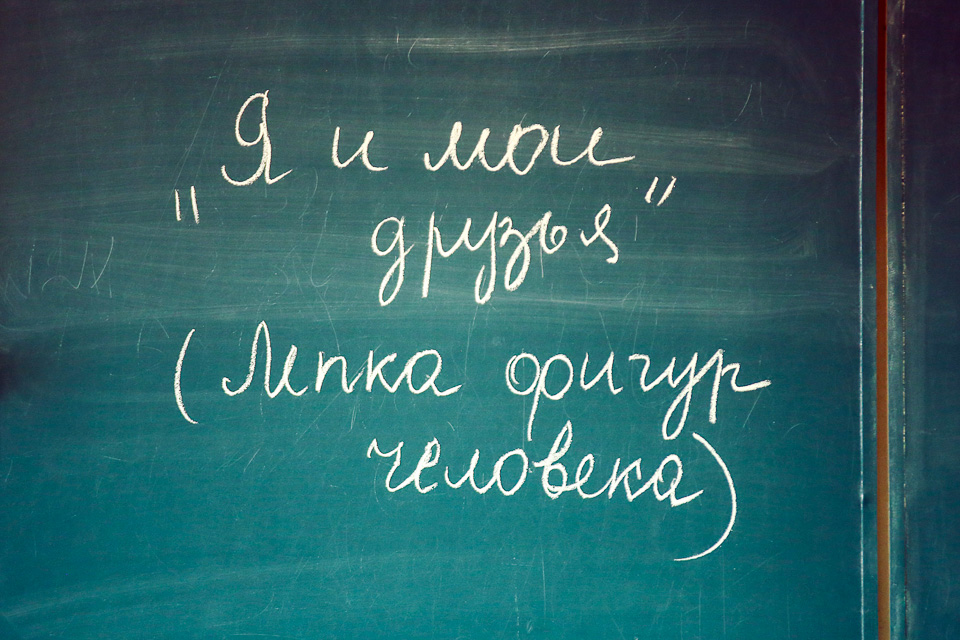 "Я и мои
друзья"
(Лепка фигур
человека)